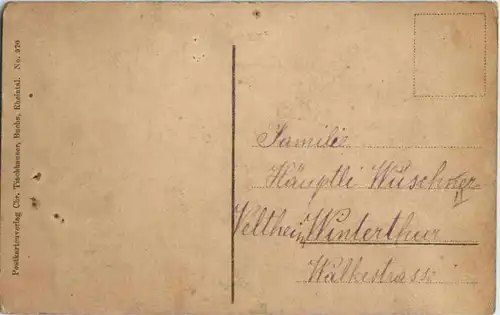 Postkartenverlag Chr. Tischhauser, Buchs, Rheintal. No. 270
Familie
Häuptli Wüscher
Veltheim Winterthur
Wülflingerstrasse